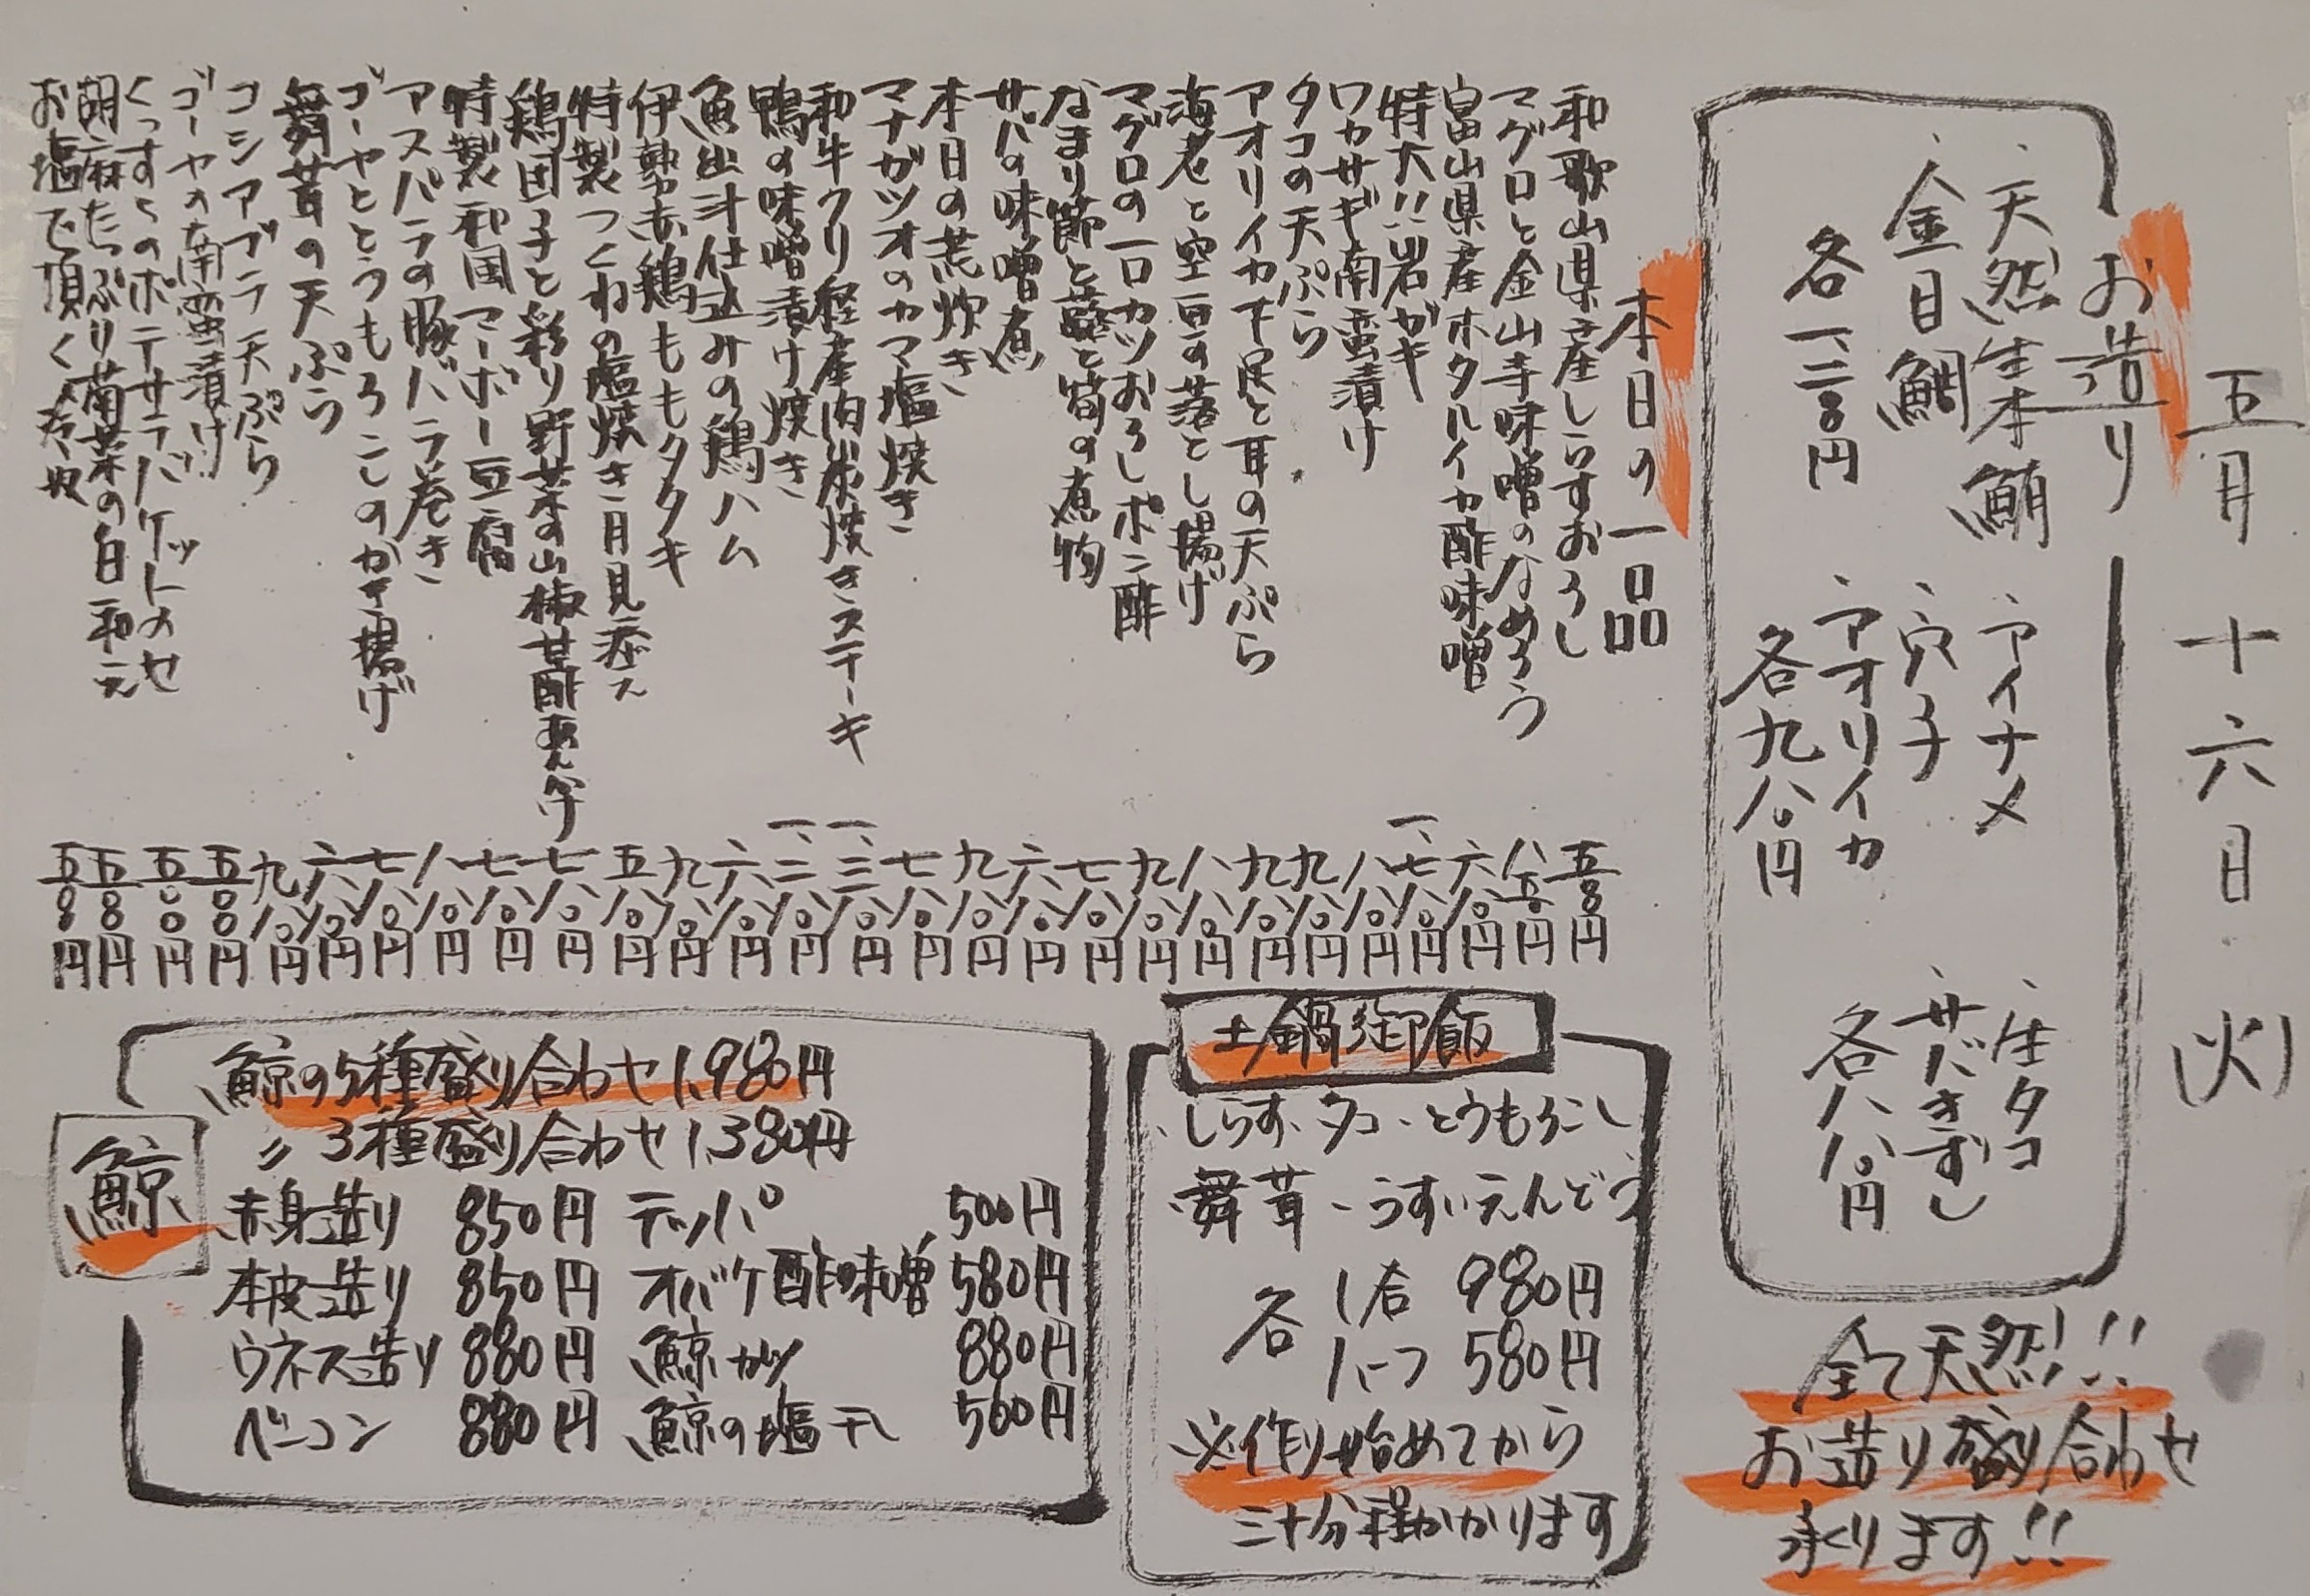 五月十六日(火)
お造り
・天然生本鮪
・金目鯛
各一、二〇〇円
・アイナメ
・穴子
・アオリイカ
各九八〇円
・生タコ
・サバきずし
各八八〇円
全て天然!!
お造り盛り合わせ
承ります!!
本日の一品
和歌山県産しらすおろし 五〇〇円
マグロと金山寺味噌のなめろう 八五〇円
富山県産ホタルイカ酢味噌 六八〇円
特大!!岩ガキ 一、七八〇円
ワカサギ南蛮漬け 八八〇円
タコの天ぷら 九八〇円
アオリイカ下足と耳の天ぷら 九八〇円
海老と空豆の落とし揚げ 八八〇円
マグロの一口カツおろしポン酢 九八〇円
なまり節と蕗と筍の煮物 七八〇円
サバの味噌煮 六八〇円
本日の荒炊き 九八〇円
マナガツオのカマ塩焼き 七八〇円
和牛クリ 経産肉炭焼きステーキ 一、三八〇円
鴨の味噌漬け焼き 一、二八〇円
魚出汁仕込みの鶏ハム 六八〇円
伊勢赤鶏ももタタキ 九八〇円
特製つくねの塩焼き 月見添え 五八〇円
鶏団子と彩り野菜の山椒甘酢あんかけ 七八〇円
特製和風マーボー豆腐 七八〇円
アスパラの豚バラ巻き 八八〇円
ゴーヤととうもろこしのかき揚げ 七八〇円
舞茸の天ぷら 六八〇円
コシアブラ天ぷら 九八〇円
ゴーヤの南蛮漬け 五〇〇円
くんすらのポテサラバケットのせ 五〇〇円
胡麻たっぷり菊菜の白和え 五〇〇円
お塩で頂く冷奴 五〇〇円
土鍋御飯
・しらす・タコ・とうもろこし
・舞茸・うすいえんどう
各 1合 980円
ハーフ 580円
※作り始めてから
三十分程かかります
鯨
鯨の5種盛り合わせ 1,980円
〃 3種盛り合わせ 1,380円
赤身造り 850円 テッパ 500円
本皮造り 850円 オバケ酢味噌 580円
ウネス造り 880円 鯨カツ 880円
ベーコン 880円 鯨の塩干し 500円